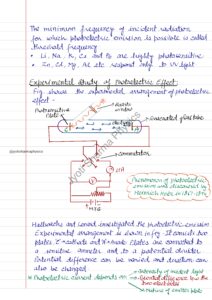 The minimum frequency of incident radiation
for which photoelectric emission is possible is called
threshold frequency
• Li, Na, K, Cs and Rb are highly photosensitive
• Zn, Cd, Mg, Al etc respond only to UV light
Experimental study of Photoelectric Effect:-
Fig. shows the experimental arrangement of photoelectric
effect -
Photosensitive
Plate
Quartz
window
Evacuated glass tube
electrons
Commutator
μA
V
HTB
Phenomenon of photoelectric
emission was discovered by
Heinrich Hertz in 1887
Hallwachs and Lenard investigated the photoelectric emission
Experimental arrangement is shown in fig. It consists two
plates C = cathode and A = anode. Plates are connected to
a sensitive ammeter and to a potential divider.
Potential difference can be varied and direction can
also be changed
• Photoelectric current depends on
Intensity of incident light
Potential difference b/w the
two electrodes
Nature of emitter plate